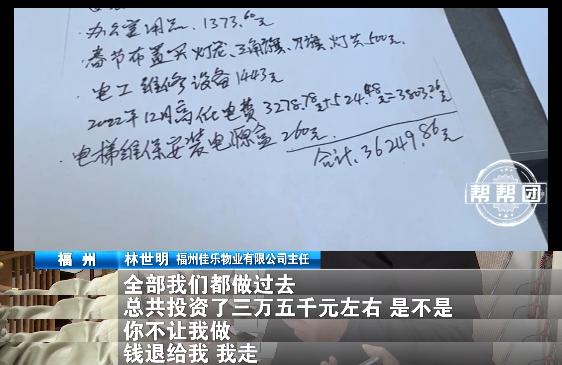 办公室用品. 1373.60元
春节布置买灯花、三角旗、刀旗、灯共500元.
电工维修设备1443元
2022年12月高低电费 3278.78元+524.48元=3803.26元
电梯维保安装电源盒260元.
合计. 36249.86元
帮帮团
福州 林世明 福州佳乐物业有限公司主任
全部我们都做过去
总共投资了三万五千元左右 是不是
你不让我做
钱退给我 我走